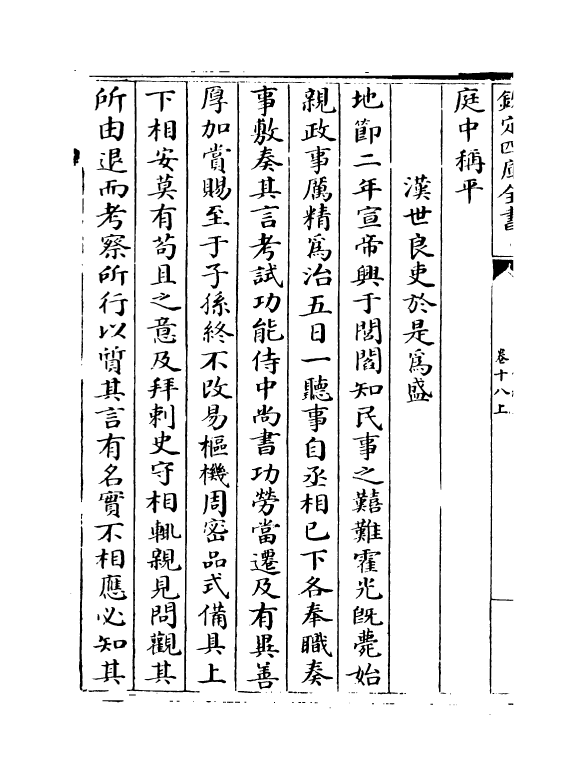 欽定四庫全書
卷十八上
庭中稱平
漢世良吏於是為盛
地節二年宣帝興于閭閻知民事之囏難霍光既薨始
親政事厲精為治五日一聽事自丞相已下各奉職奏
事敷奏其言考試功能侍中尚書功勞當遷及有異善
厚加賞賜至于子孫終不改易樞機周密品式備具上
下相安莫有苟且之意及拜刺史守相輒親見問觀其
所由退而考察所行以質其言有名實不相應必知其